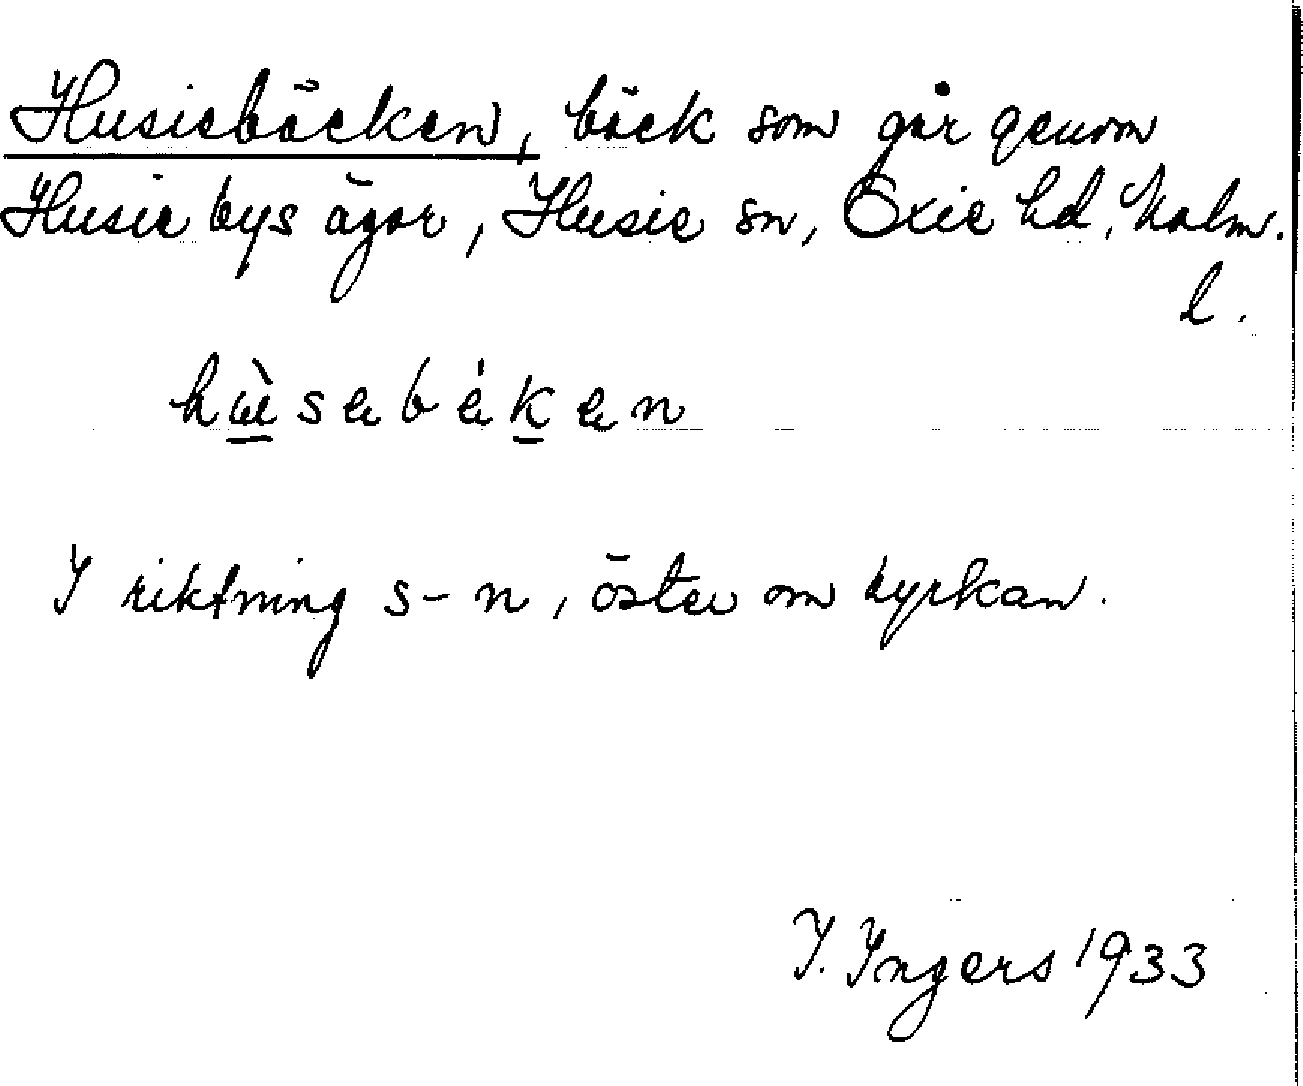 Husiebäcken, bäck som går genom
Husie bys ägor, Husie sn, Oxie hd, Malm.
l.
I riktning s-n, öster om kyrkan.
I. Ingers 1933